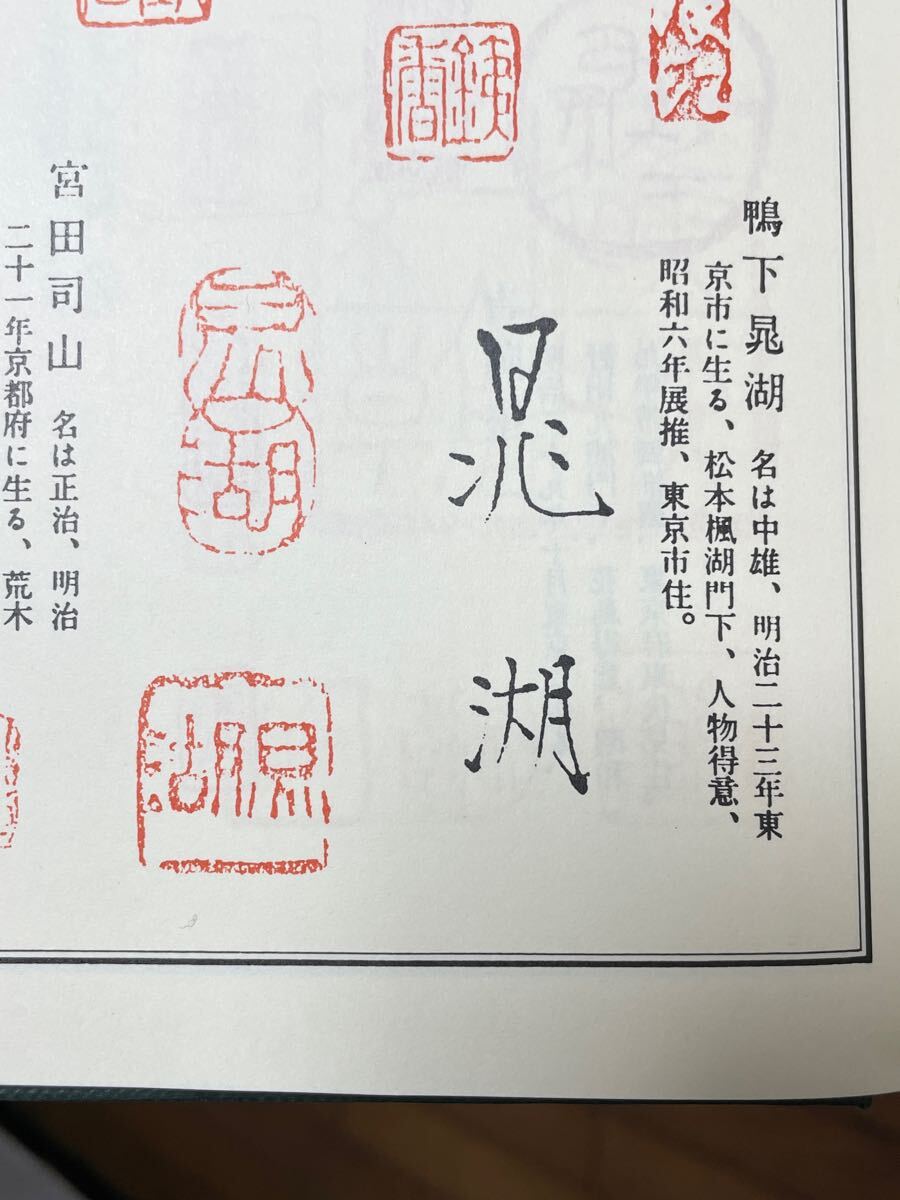 鴨下晁湖 名は中雄、明治二十三年東
京市に生る、松本楓湖門下、人物得意、
昭和六年展推、東京市住。
晁湖
晁湖
晁湖
宮田司山 名は正治、明治
二十一年京都府に生る、荒木